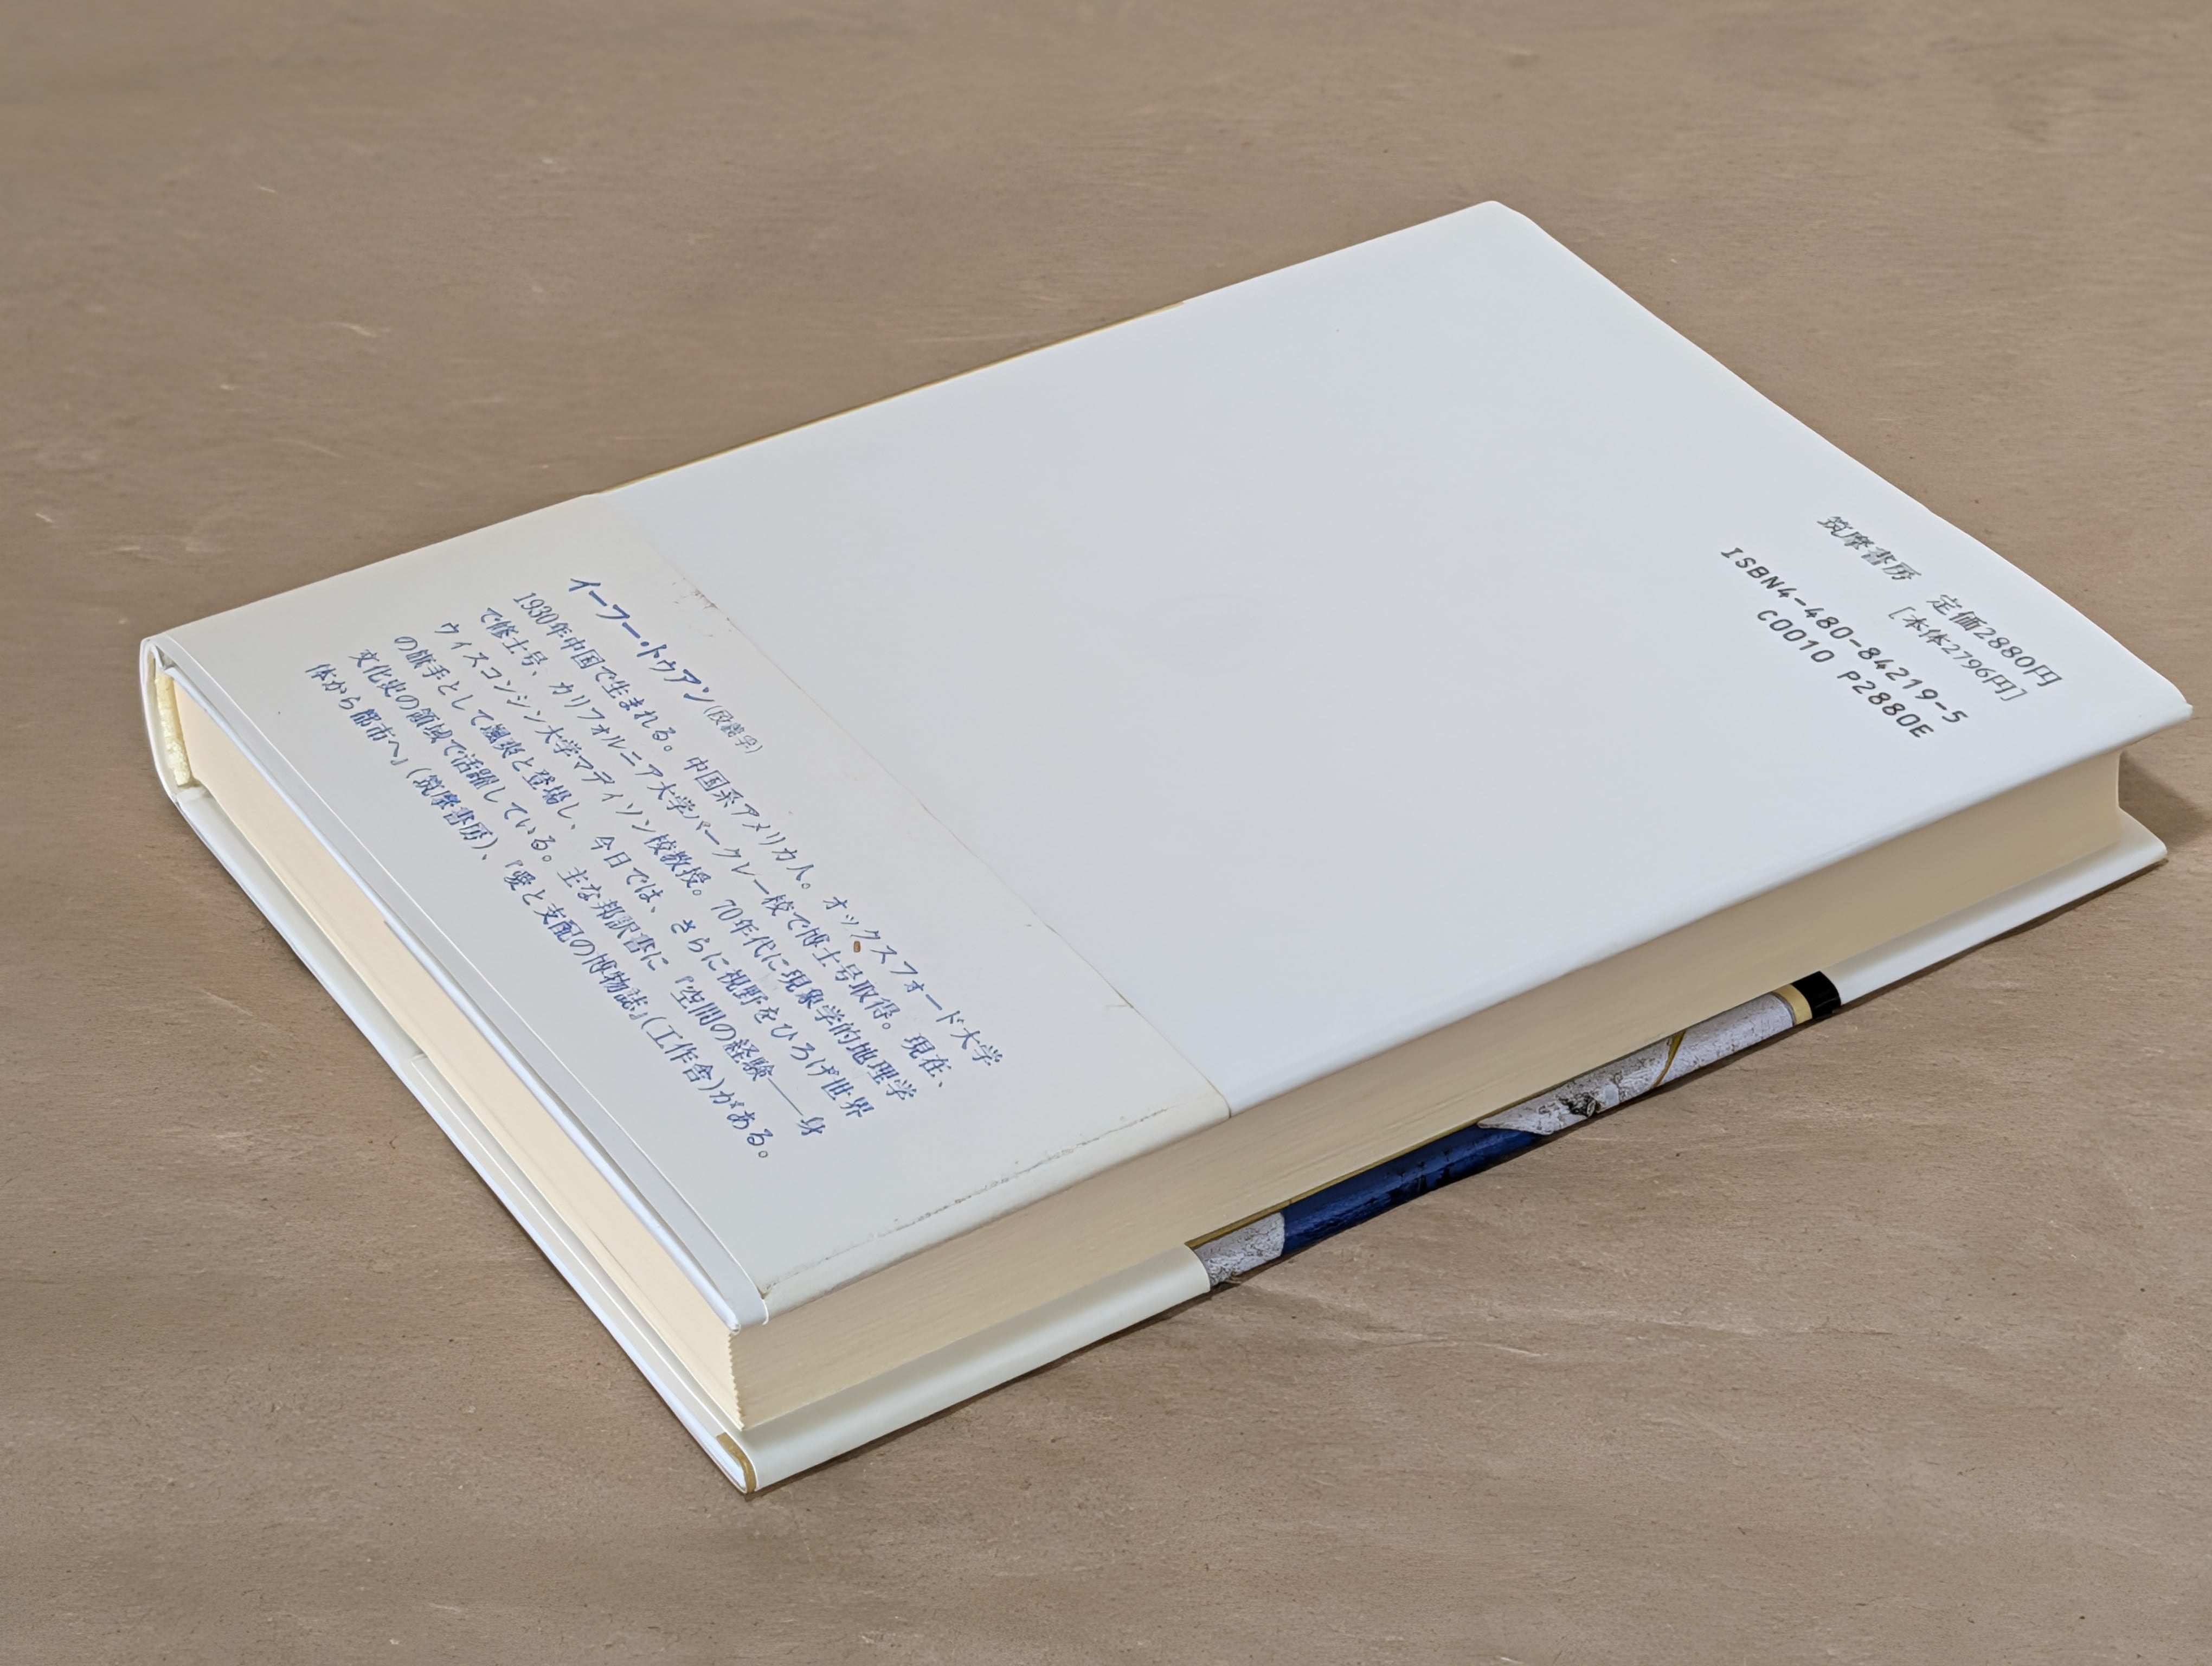 イーフー・トゥアン(段義孚)
1930年中国で生まれる。中国系アメリカ人。オックスフォード大学
で修士号、カリフォルニア大学バークレー校で博士号取得。現在、
ウイスコンシン大学マディソン校教授。70年代に現象学的地理学
の旗手として颯爽と登場し、今日では、さらに視野をひろげ世界
文化史の領域で活躍している。主な邦訳書に『空間の経験——身
体から都市へ』(筑摩書房)、『愛と支配の博物誌』(工作舎)がある。
筑摩書房 定価2880円
[本体2796円]
ISBN4-480-84219-5
C0010 P2880E